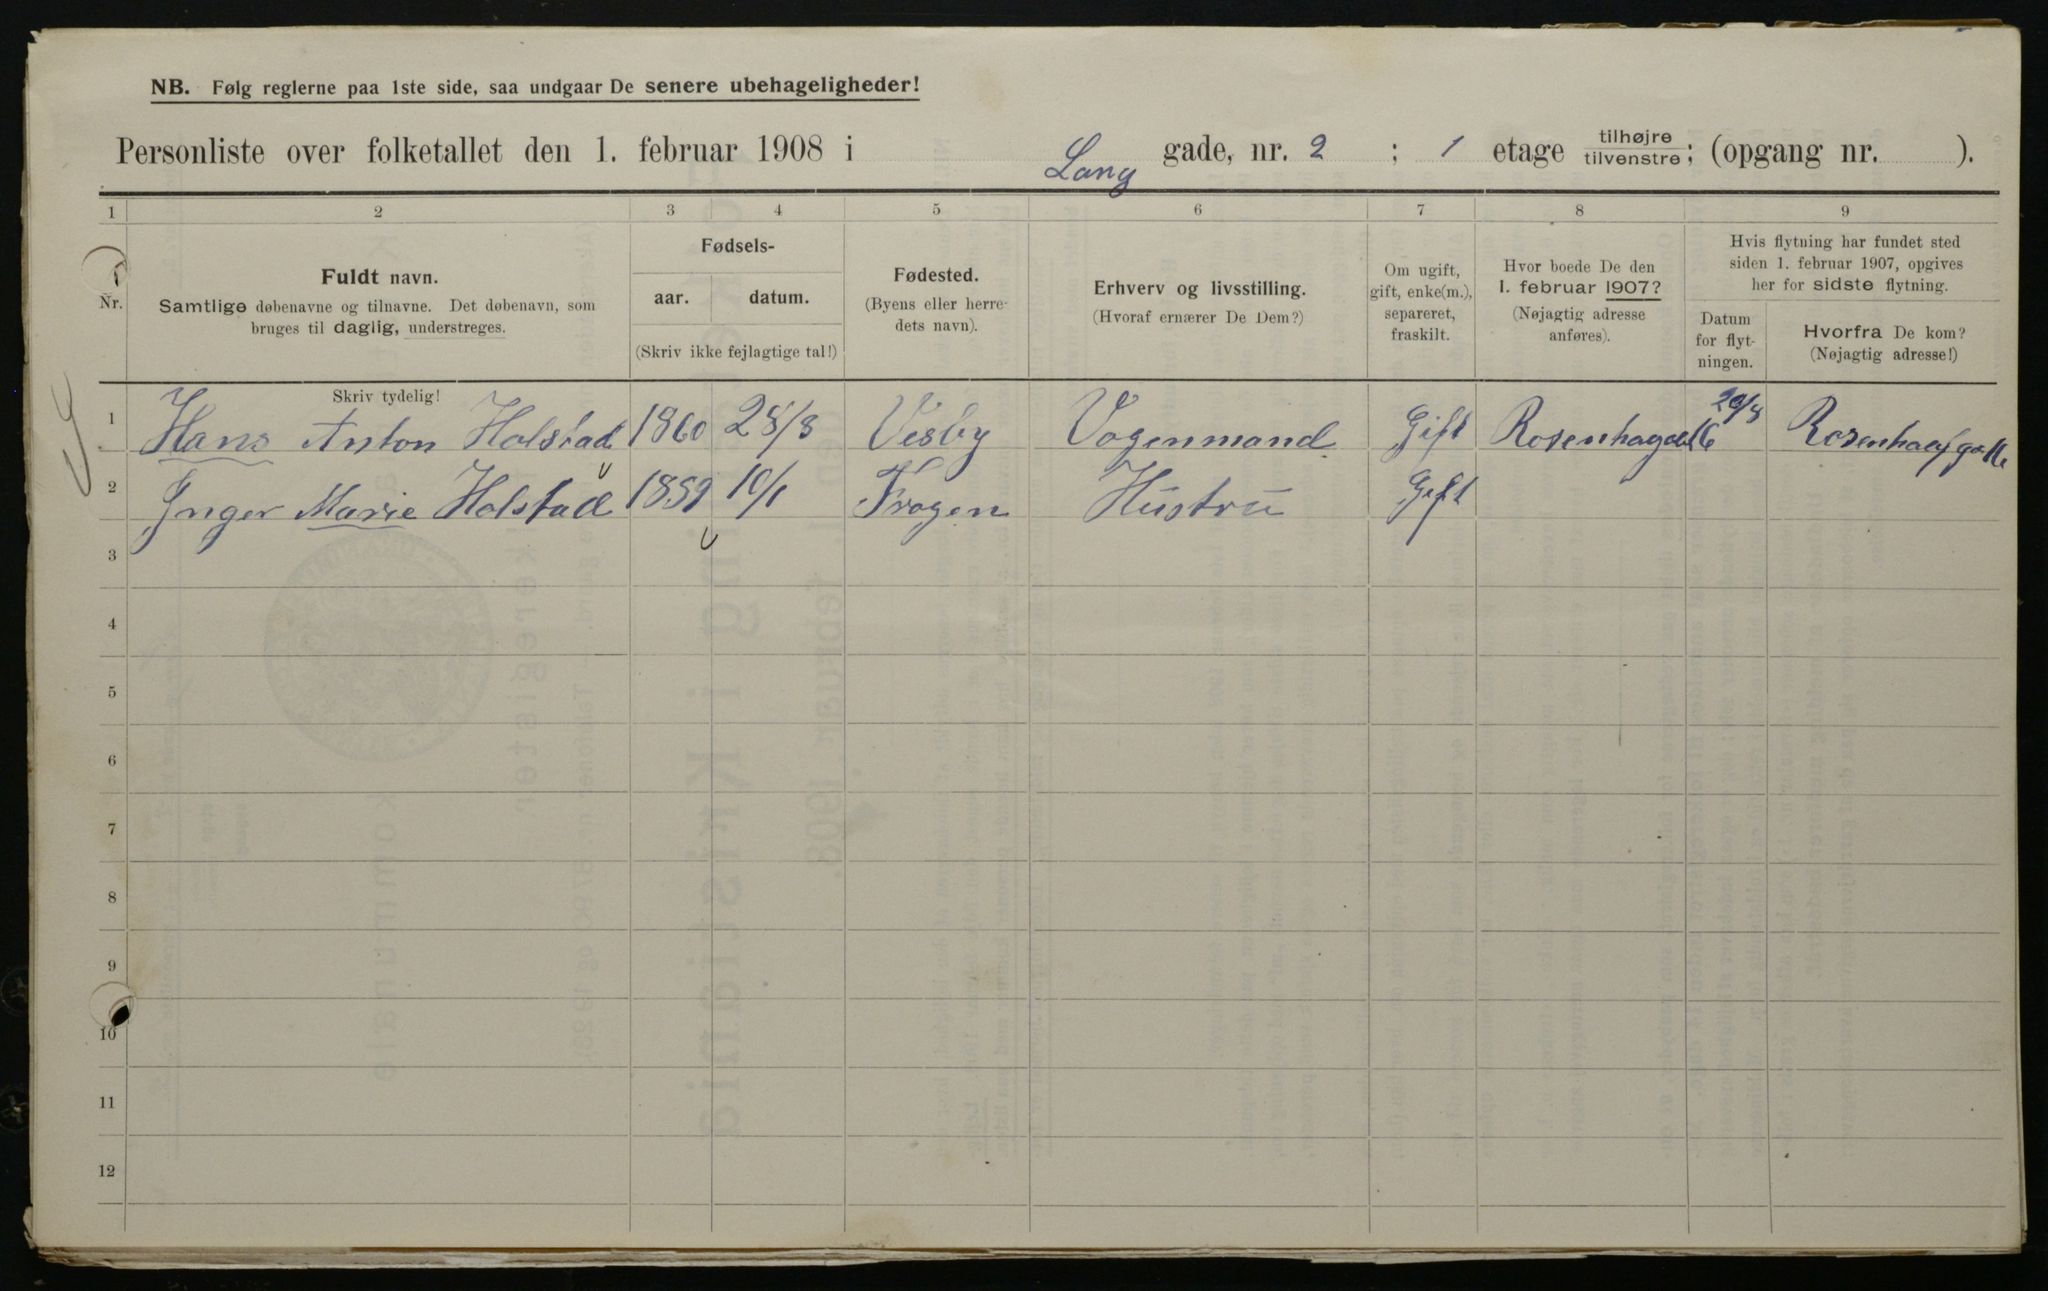 NB. Følg reglerne paa 1ste side, saa undgaar De senere ubehageligheder!
Personliste over folketallet den 1. februar 1908 i Lang gade, nr. 2 ; 1 etage tilhøjre/tilvenstre; (opgang nr. ).
1 2 3 4 5 6 7 8 9
Nr.
Fuldt navn.
Samtlige døbenavne og tilnavne. Det døbenavn, som
bruges til daglig, understreges.
Skriv tydelig!
Fødsels-
aar. datum.
(Skriv ikke fejlagtige tal!)
Fødested.
(Byens eller herre-
dets navn).
Erhverv og livsstilling.
(Hvoraf ernærer De Dem?)
Om ugift,
gift, enke(m.),
separeret,
fraskilt.
Hvor boede De den
1. februar 1907?
(Nøjagtig adresse
anføres).
Hvis flytning har fundet sted
siden 1. februar 1907, opgives
her for sidste flytning.
Datum
for flyt-
ningen.
Hvorfra De kom?
(Nøjagtig adresse!)
1 Hans Anton Holstad 1860 28/8 Vesby Vogenmand Gift Rosenhagade 16 20/8 Rosenhaufga 16
2 Inger Marie Holstad 1859 10/1 Frogen Hustru Gift
3
4
5
6
7
8
9
10
11
12